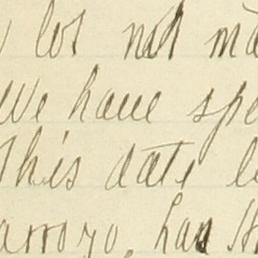 lot not ma
We have spe
This date le
arroyo, has th